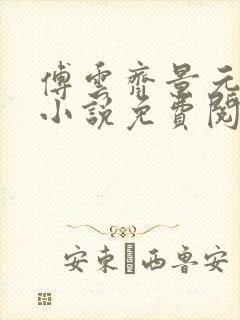 傅雲齊景元
小說免費閱
安東尼西魯安